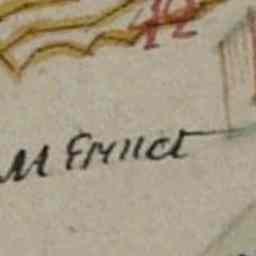 42
M Ernict